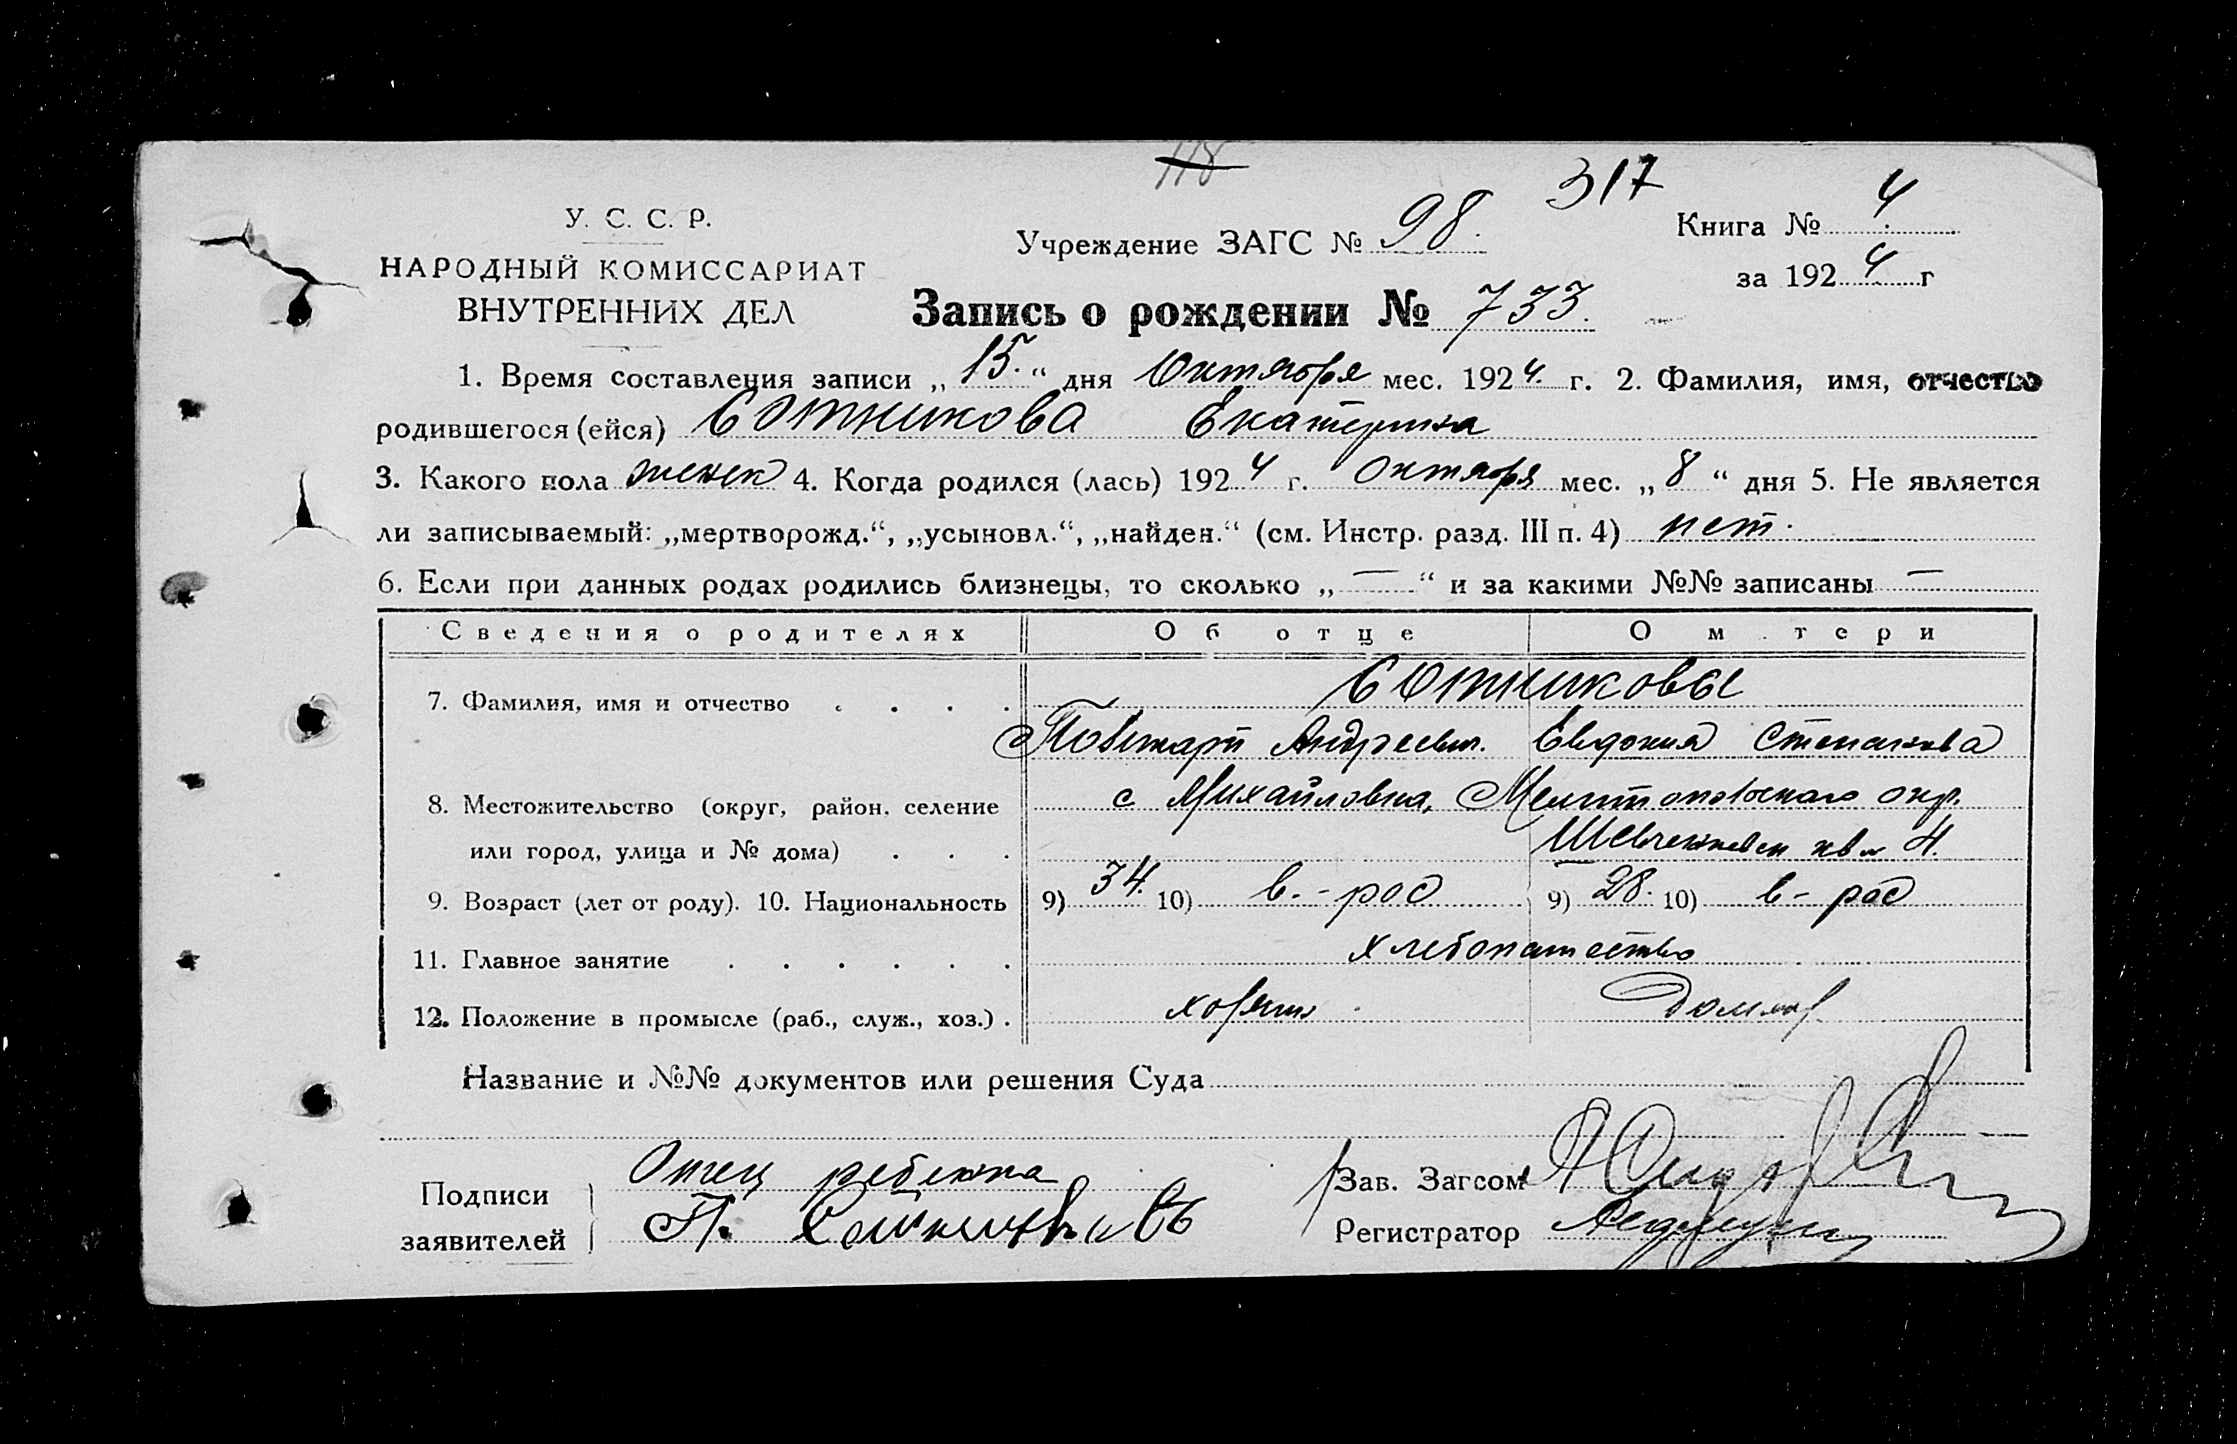 118
317
У. С. С. Р.
НАРОДНЫЙ КОМИССАРИАТ
ВНУТРЕННИХ ДЕЛ
Учреждение ЗАГС № 98.
Книга № 4
за 1924 г
Запись о рождении № 733.
1. Время составления записи „15.“ дня Октября мес. 1924. г. 2. Фамилия, имя, отчество
родившегося (ейся) Сотникова Екатерина
3. Какого пола женск 4. Когда родился (лась) 1924 г. Октября мес. „8“ дня 5. Не является
ли записываемый: „мертворожд.“, „усыновл.“, „найден.“ (см. Инстр. разд. III п. 4) нет.
6. Если при данных родах родились близнецы, то сколько „—“ и за какими №№ записаны —
Сведения о родителях Об отце О м тери
7. Фамилия, имя и отчество Сотниковы
Андреевич. Евдокия Степановна
8. Местожительство (округ, район, селение с Михайловка, Мелитопольского окр.
или город, улица и № дома) 4.
9. Возраст (лет от роду). 10. Национальность 9) 34. 10) в.-рос 9) 28. 10) в-рос
11. Главное занятие хлебопашество
12. Положение в промысле (раб., служ., хоз.)
Название и №№ документов или решения Суда
Подписи Отец ребенка
заявителей П. Сотниковъ
Зав. Загсом
Регистратор